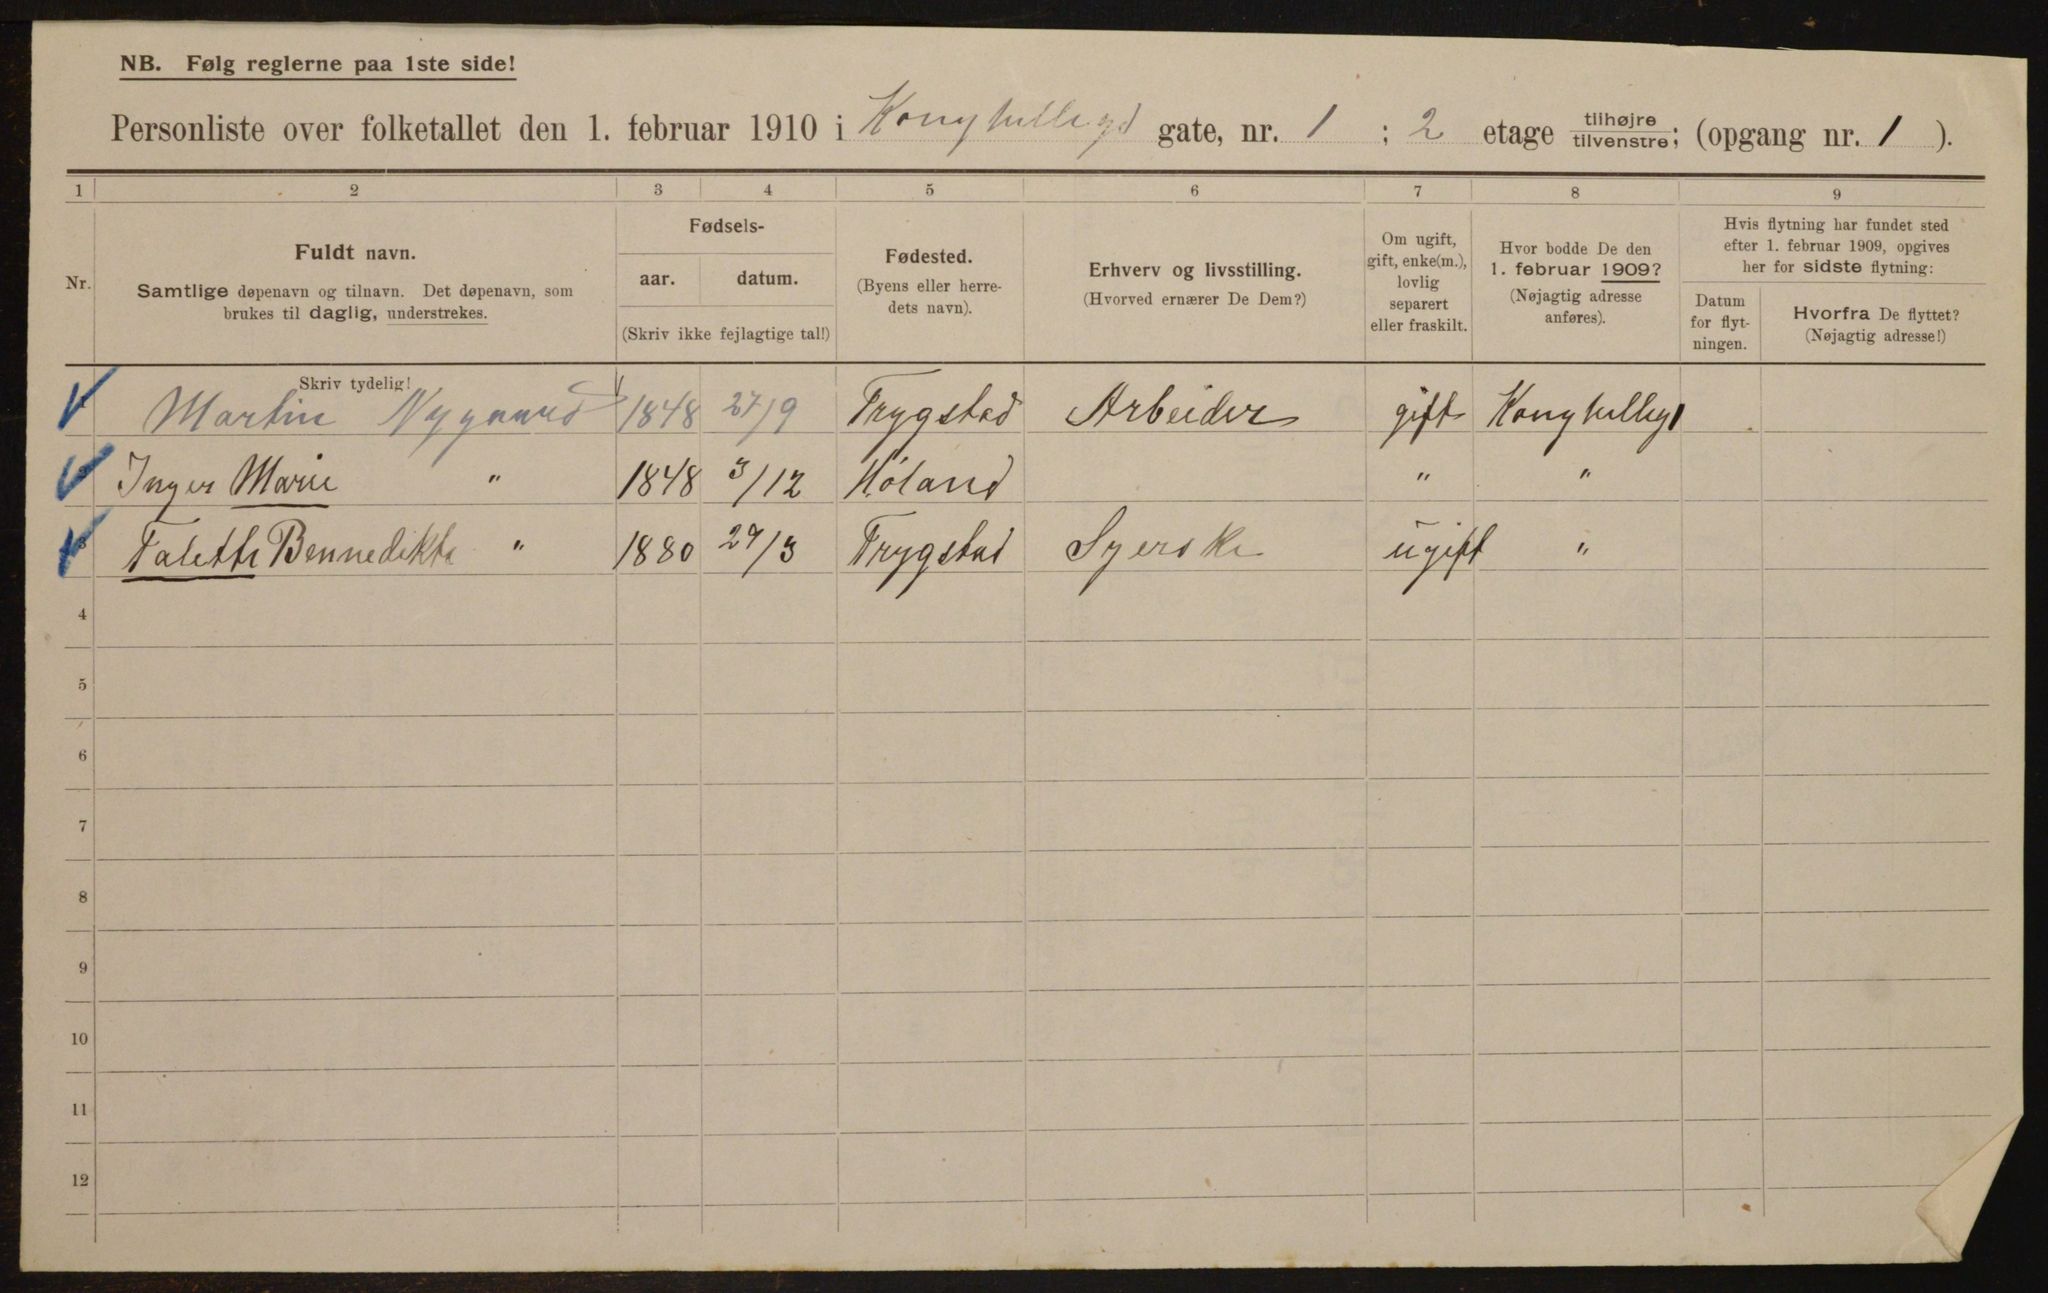 NB. Følg reglerne paa 1ste side!
Personliste over folketallet den 1. februar 1910 i Konghellegd gate, nr. 1 ; 2 etage tilhøjre tilvenstre; (opgang nr. 1 ).
1 2 3 4 5 6 7 8 9
Nr.
Fuldt navn.
Samtlige døpenavn og tilnavn. Det døpenavn, som
brukes til daglig, understrekes.
Skriv tydelig!
Fødsels-
aar. datum.
(Skriv ikke fejlagtige tal!)
Fødested.
(Byens eller herre-
dets navn).
Erhverv og livsstilling.
(Hvorved ernærer De Dem?)
Om ugift,
gift, enke(m.),
lovlig
separert
eller fraskilt.
Hvor bodde De den
1. februar 1909?
(Nøjagtig adresse
anføres).
Hvis flytning har fundet sted
efter 1. februar 1909, opgives
her for sidste flytning:
Datum
for flyt-
ningen.
Hvorfra De flyttet?
(Nøjagtig adresse!)
Martin Nygaard 1848 27/9 Trygstad Arbeider gift Konghelleg 1
Inger Marie " 1848 3/12 Høland " "
3 Taletta Bennedikte " 1880 27/3 Trygstad Syerske ugift "
4
5
6
7
8
9
10
11
12